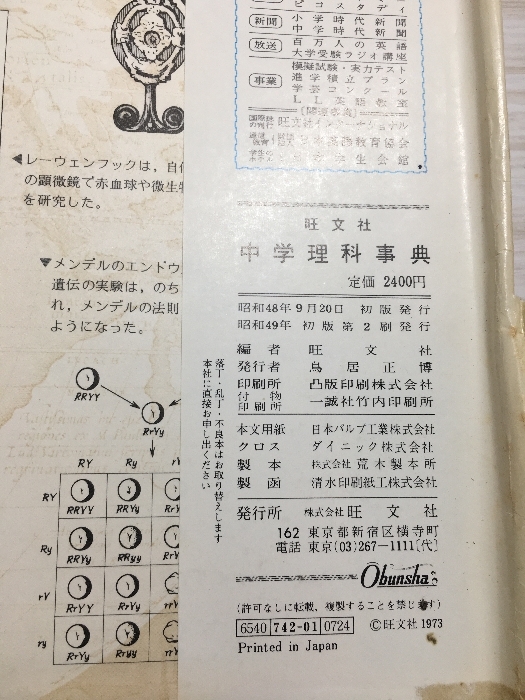 ピコスタディ
新聞 小学時代新聞
中学時代新聞
放送 百万人の英語
大学受験ラジオ講座
事業 模擬試験・実力テスト
進学積立プラン
学芸コンクール
LL英語教室
旺文社インターナショナル
日本英語教育協会
学生会館
◀レーウェンフックは，自
の顕微鏡で赤血球や微生
を研究した。
▼メンデルのエンドウ
遺伝の実験は，のち
れ，メンデルの法則
ようになった。
RRYY
RrYy
RY Ry
RY RRYY RRYy
Ry RRYy RRyy
rY RrYY RrYy
ry RrYy Rryy
旺文社
中学理科事典
定価 2400円
昭和48年9月20日 初版発行
昭和49年 初版第2刷発行
編者 旺文社
発行者 鳥居正博
印刷所 凸版印刷株式会社
付物印刷所 一誠社竹内印刷所
本文用紙 日本パルプ工業株式会社
クロス ダイニック株式会社
製本 株式会社 荒木製本所
製函 清水印刷紙工株式会社
発行所 株式会社 旺文社
162 東京都新宿区横寺町
電話 東京(03)267-1111〔代〕
落丁・乱丁・不良本はお取り替えします
本社に直接お申し出ください
Obunsha
(許可なしに転載，複製することを禁じます)
6540 742-01 0724 ©旺文社 1973
Printed in Japan